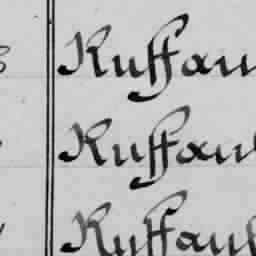 Kuffau
Kuffau
Kuffau